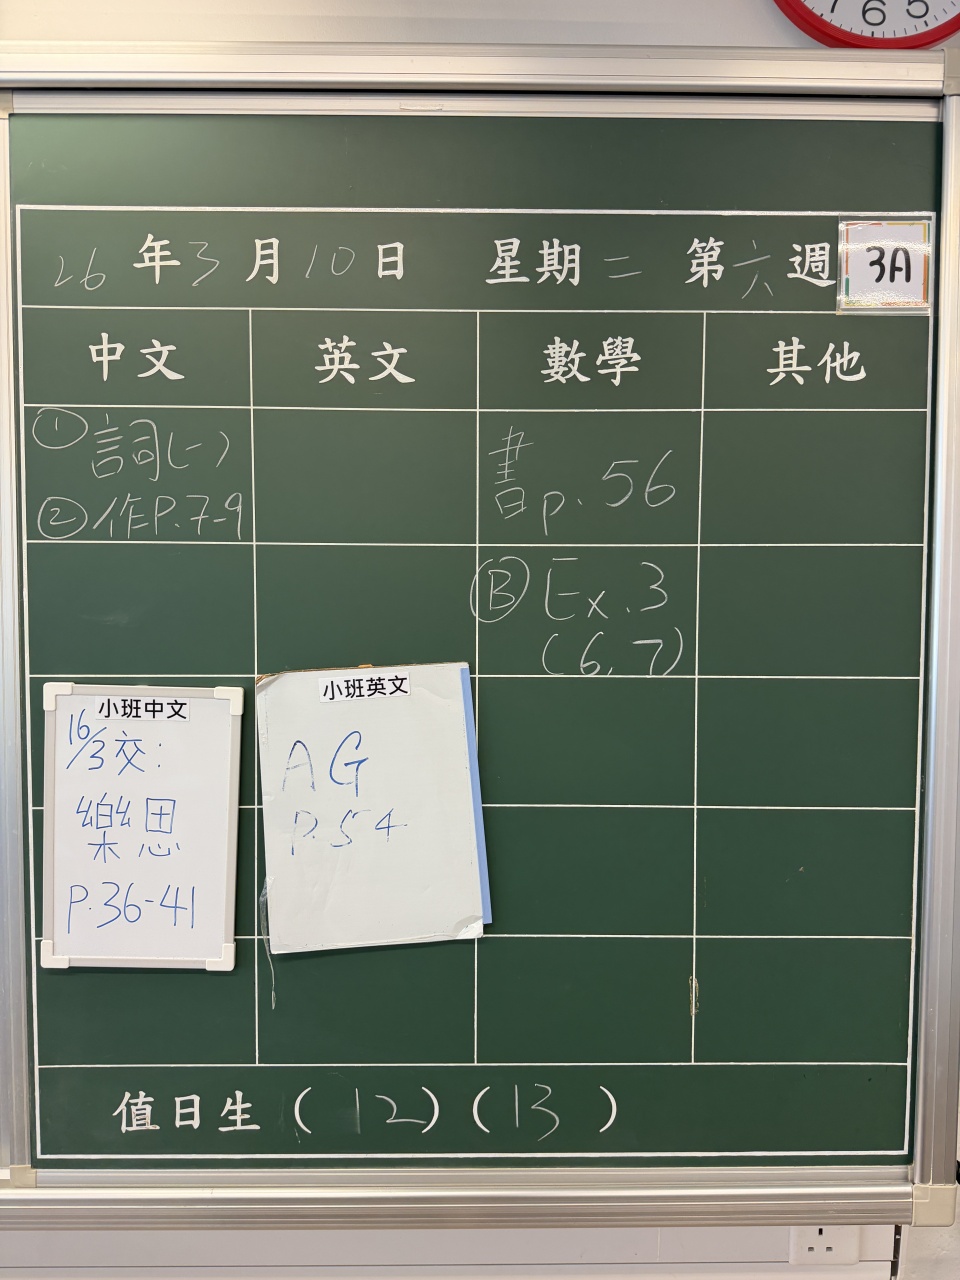 7 6 5
26年3月10日 星期二 第六週 3A
中文 英文 數學 其他
① 詞(一)
② 作P.7-9
書p.56
Ⓑ Ex.3
(6,7)
小班中文
16/3交:
樂思
P.36-41
小班英文
AG
P.54
值日生 (12)(13)